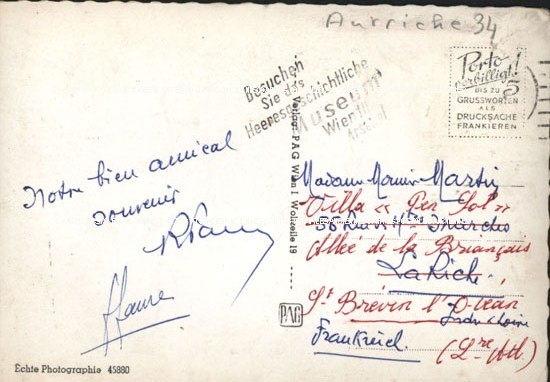 Autriche 34
Besuchen
Sie das
Heeresgeschichtliche
Museum
Wien III
Arsenal
Porto
verbilligt!
BIS ZU
5
GRUSSWORTEN
ALS
DRUCKSACHE
FRANKIEREN
Notre bien amical
souvenir
Verlag: PAG Wien I Wollzeile 19
PAG
Madame Martin
Villa « Per Sol »
Allée de la Briançais
La Riche
St Brévin l'Océan
Indre & Loire
Frankreich
(Lre Atl)
Echte Photographie 45880